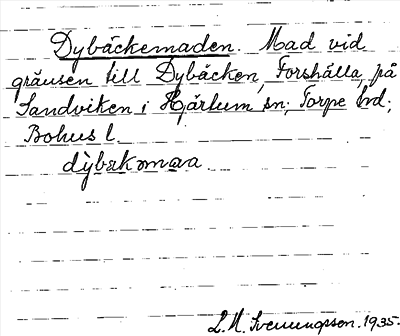 Dybäckemaden. Mad vid
gränsen till Dybäcken, Forshälla, på
Sandviken i Hjärtum sn; Torpe hd;
Bohus l.
dỳbækəmaa.
L. M. Svenungsson. 1935.